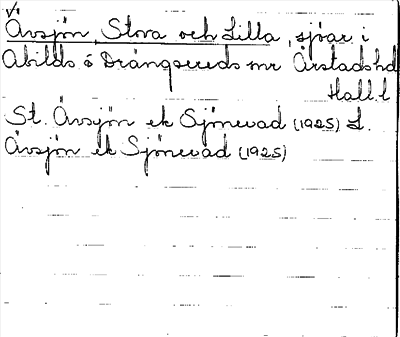 Åvsjön, Stora och Lilla, sjöar i
Abilds o Drängsereds snr Årstads hd
Hall. l
St. Åvsjön ek Sjönevad (1925) L.
Åvsjön ek Sjönevad (1925)